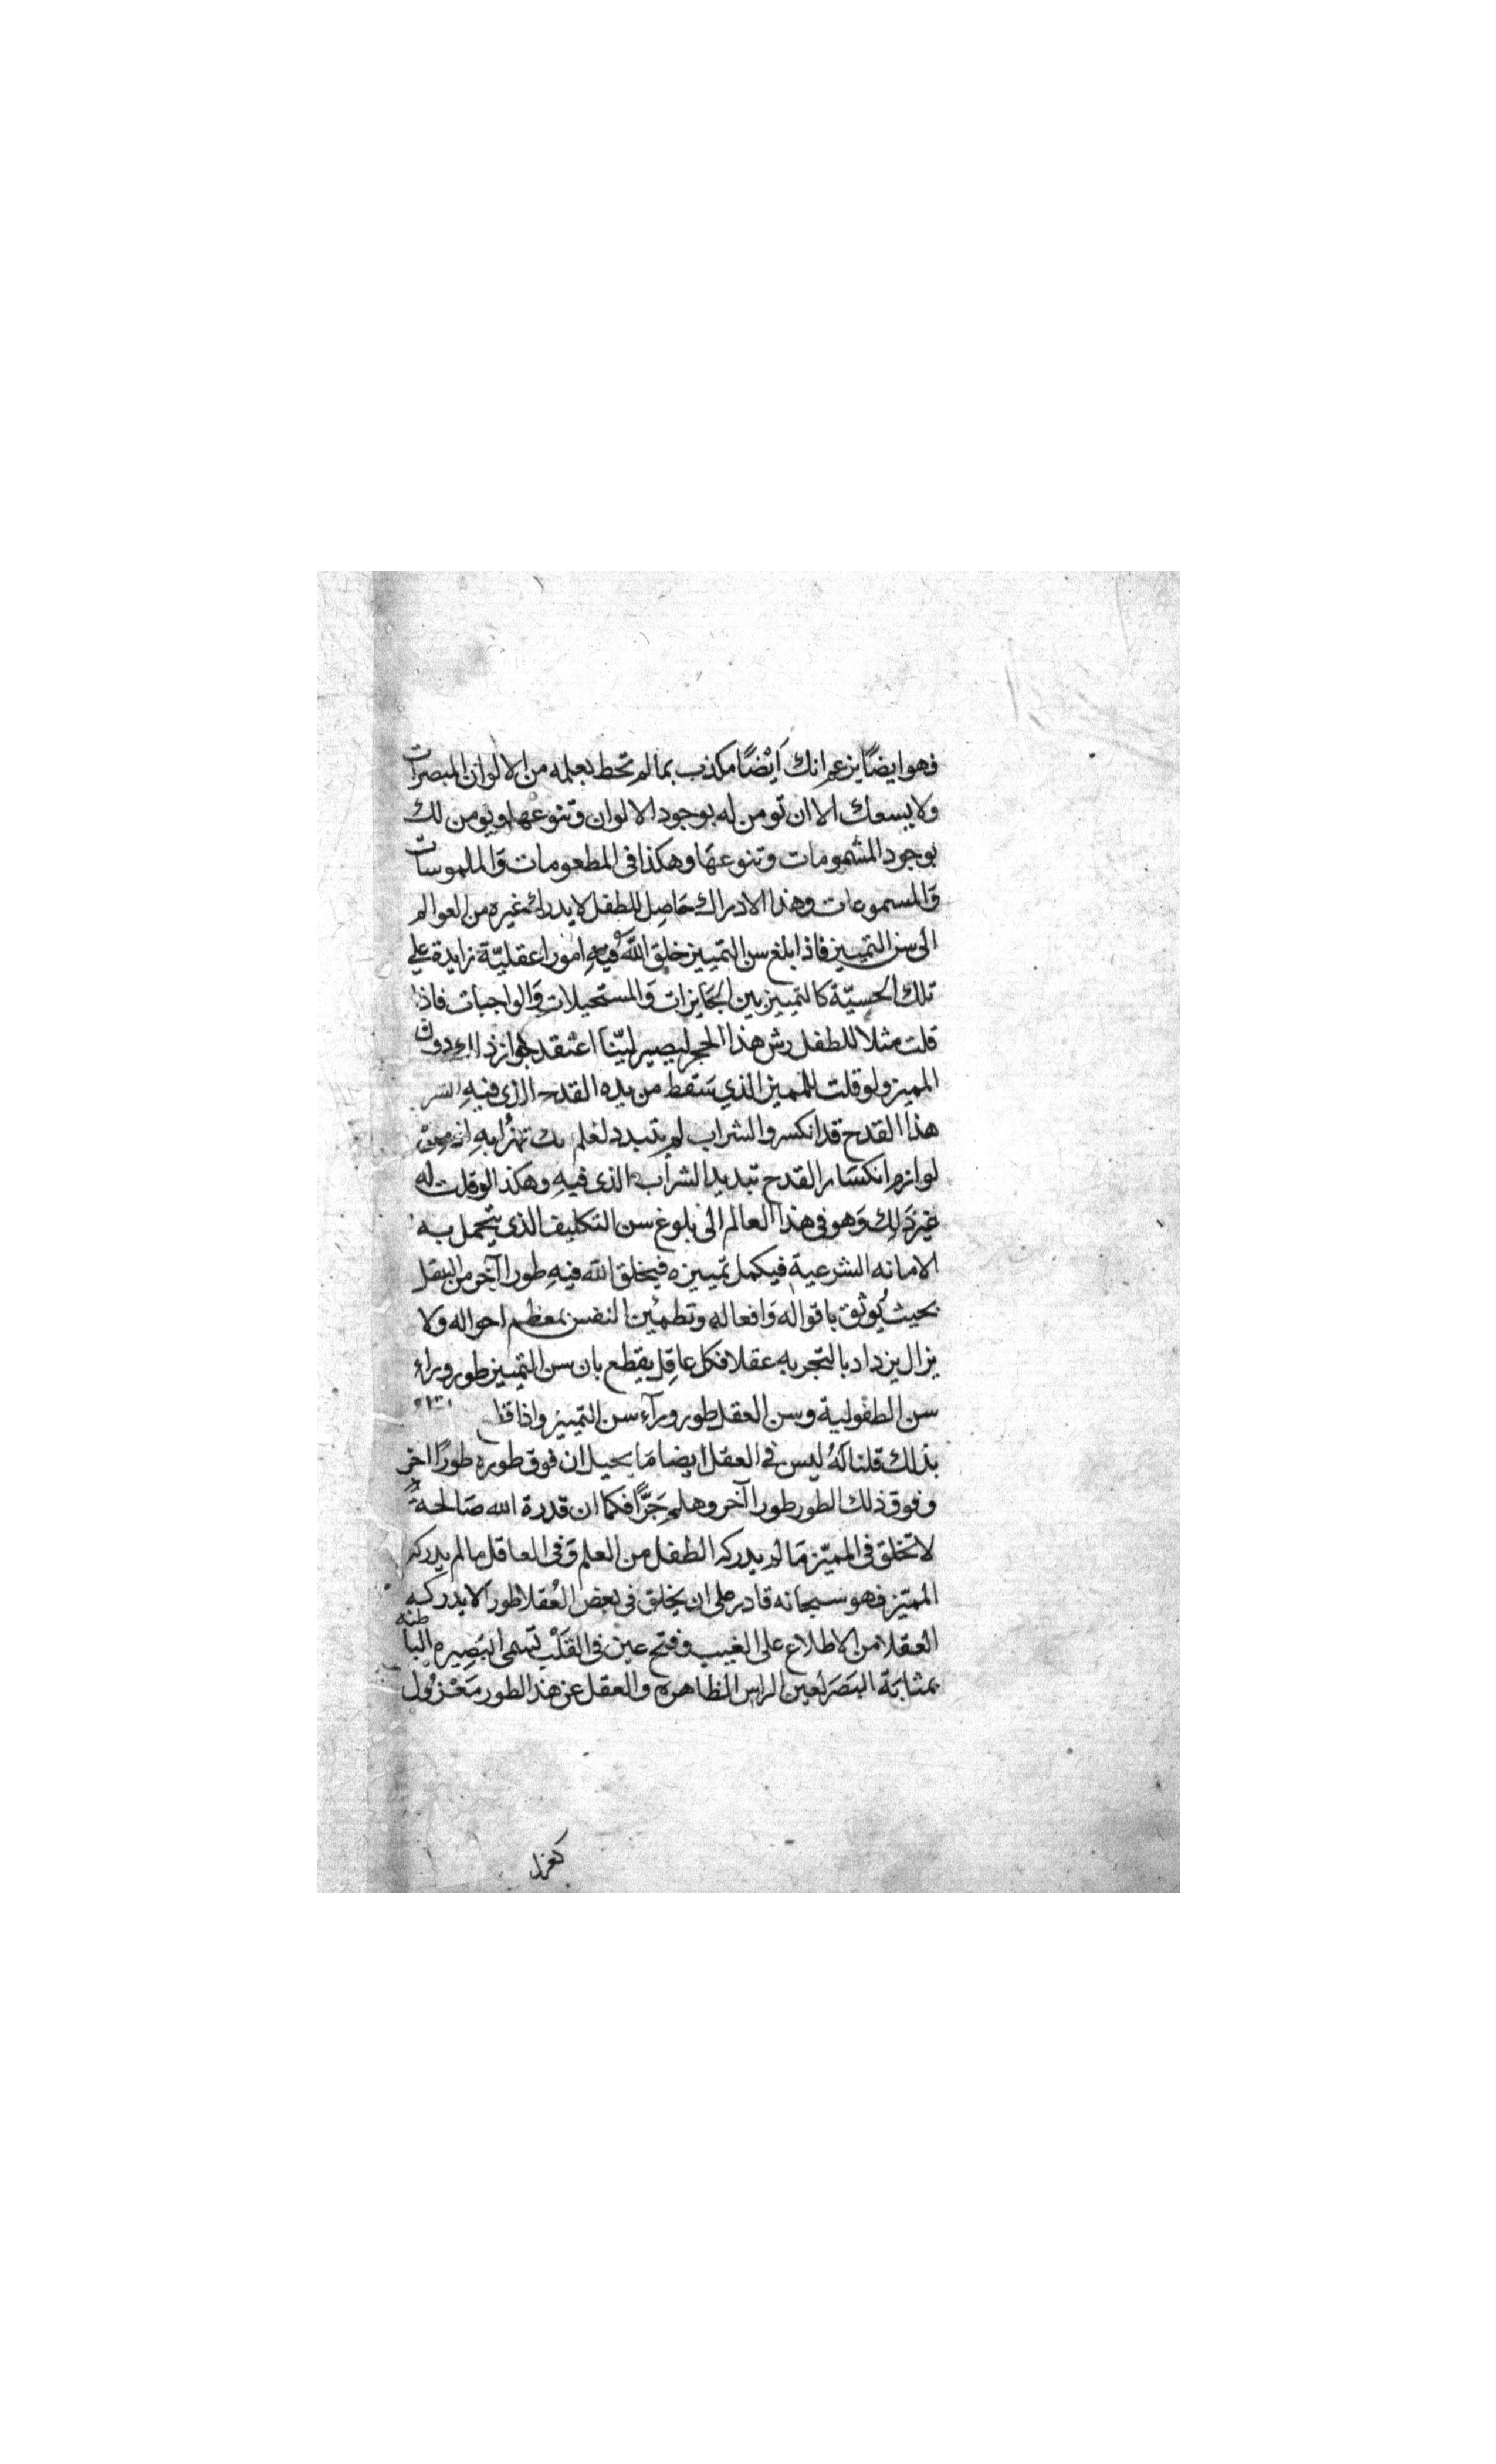 فهو ايضًا يزعم انك اَيْضًا مكذب بما لم تحط بعلمه من الالوان المبصرات
ولا يسعك الا ان تومن له بوجود الالوان وتنوعها ويومن لك
بوجود المشمومات وتنوعهَا وهكذا فى المطعومات وَالملموسات
وَالمسموعات وهذا الادراك حَاصِل للطفل لا يدرك غيره من العوالم
الى سن التمييز فاذا بلغ سن التمييز خلق اللّه فيهِ امورا عقليّة زايدة على
تلك الحسيّة كالتمييز بين الجَايزات وَالمستحيلات وَالواجبات فاذا
قلت مثلا للطفل رش هذا الحجر ليصير ليّنًا اعتقد جواز ذلك دون
المميز ولو قلت للمميز الذي سَقط من يده القدح الذى فيهِ
هذا القدح قد انكسر والشراب لم يتبدد لعلم تهزأ بهِ اذ من
لوازم انكسَار القدح تبديد الشراب الذى فيهِ وهكذا لو قلت له
غير ذَلِك وَهو فى هذا العالم الى بلوغ سن التكليف الذى يتحمل به
الامانه الشرعية فيكمل تمييزه فيخلق اللّه فيهِ طورا آخر من العقل
بحيث يُوثق باقواله وَافعاله وتطمئن النفس بمعظم احواله ولا
يزال يزداد بالتجربه عقلا فكل عاقِل يقطع بان سن التمييز طور وراء
سن الطفولية وسن العقل طور ورآء سن التمييز واذا
بذلك قلنا لَهُ ليس فى العقل ايضا مَا يحيل ان فوق طوره طورًا اخر
وفوق ذلك الطور طورا آخر وهلم جَرًّا فكما ان قدرة الله صَالحةٌ
لا تخلق فى المميّز مَا لم يدركه الطفل من العلم وَفى العاقل ما لم يدركه
المميّز فهو سبحانه قادر على ان يخلق فى بعض العُقلا طورا لا يدركه
العقلا من الاطلاع على الغيب وفتح عين فى القَلْب تسمى البَصِيره الباطنه
بمثابَة البَصَر لعين الراس الظاهره والعقل عن هذا الطور مَعْزُول
كعزل